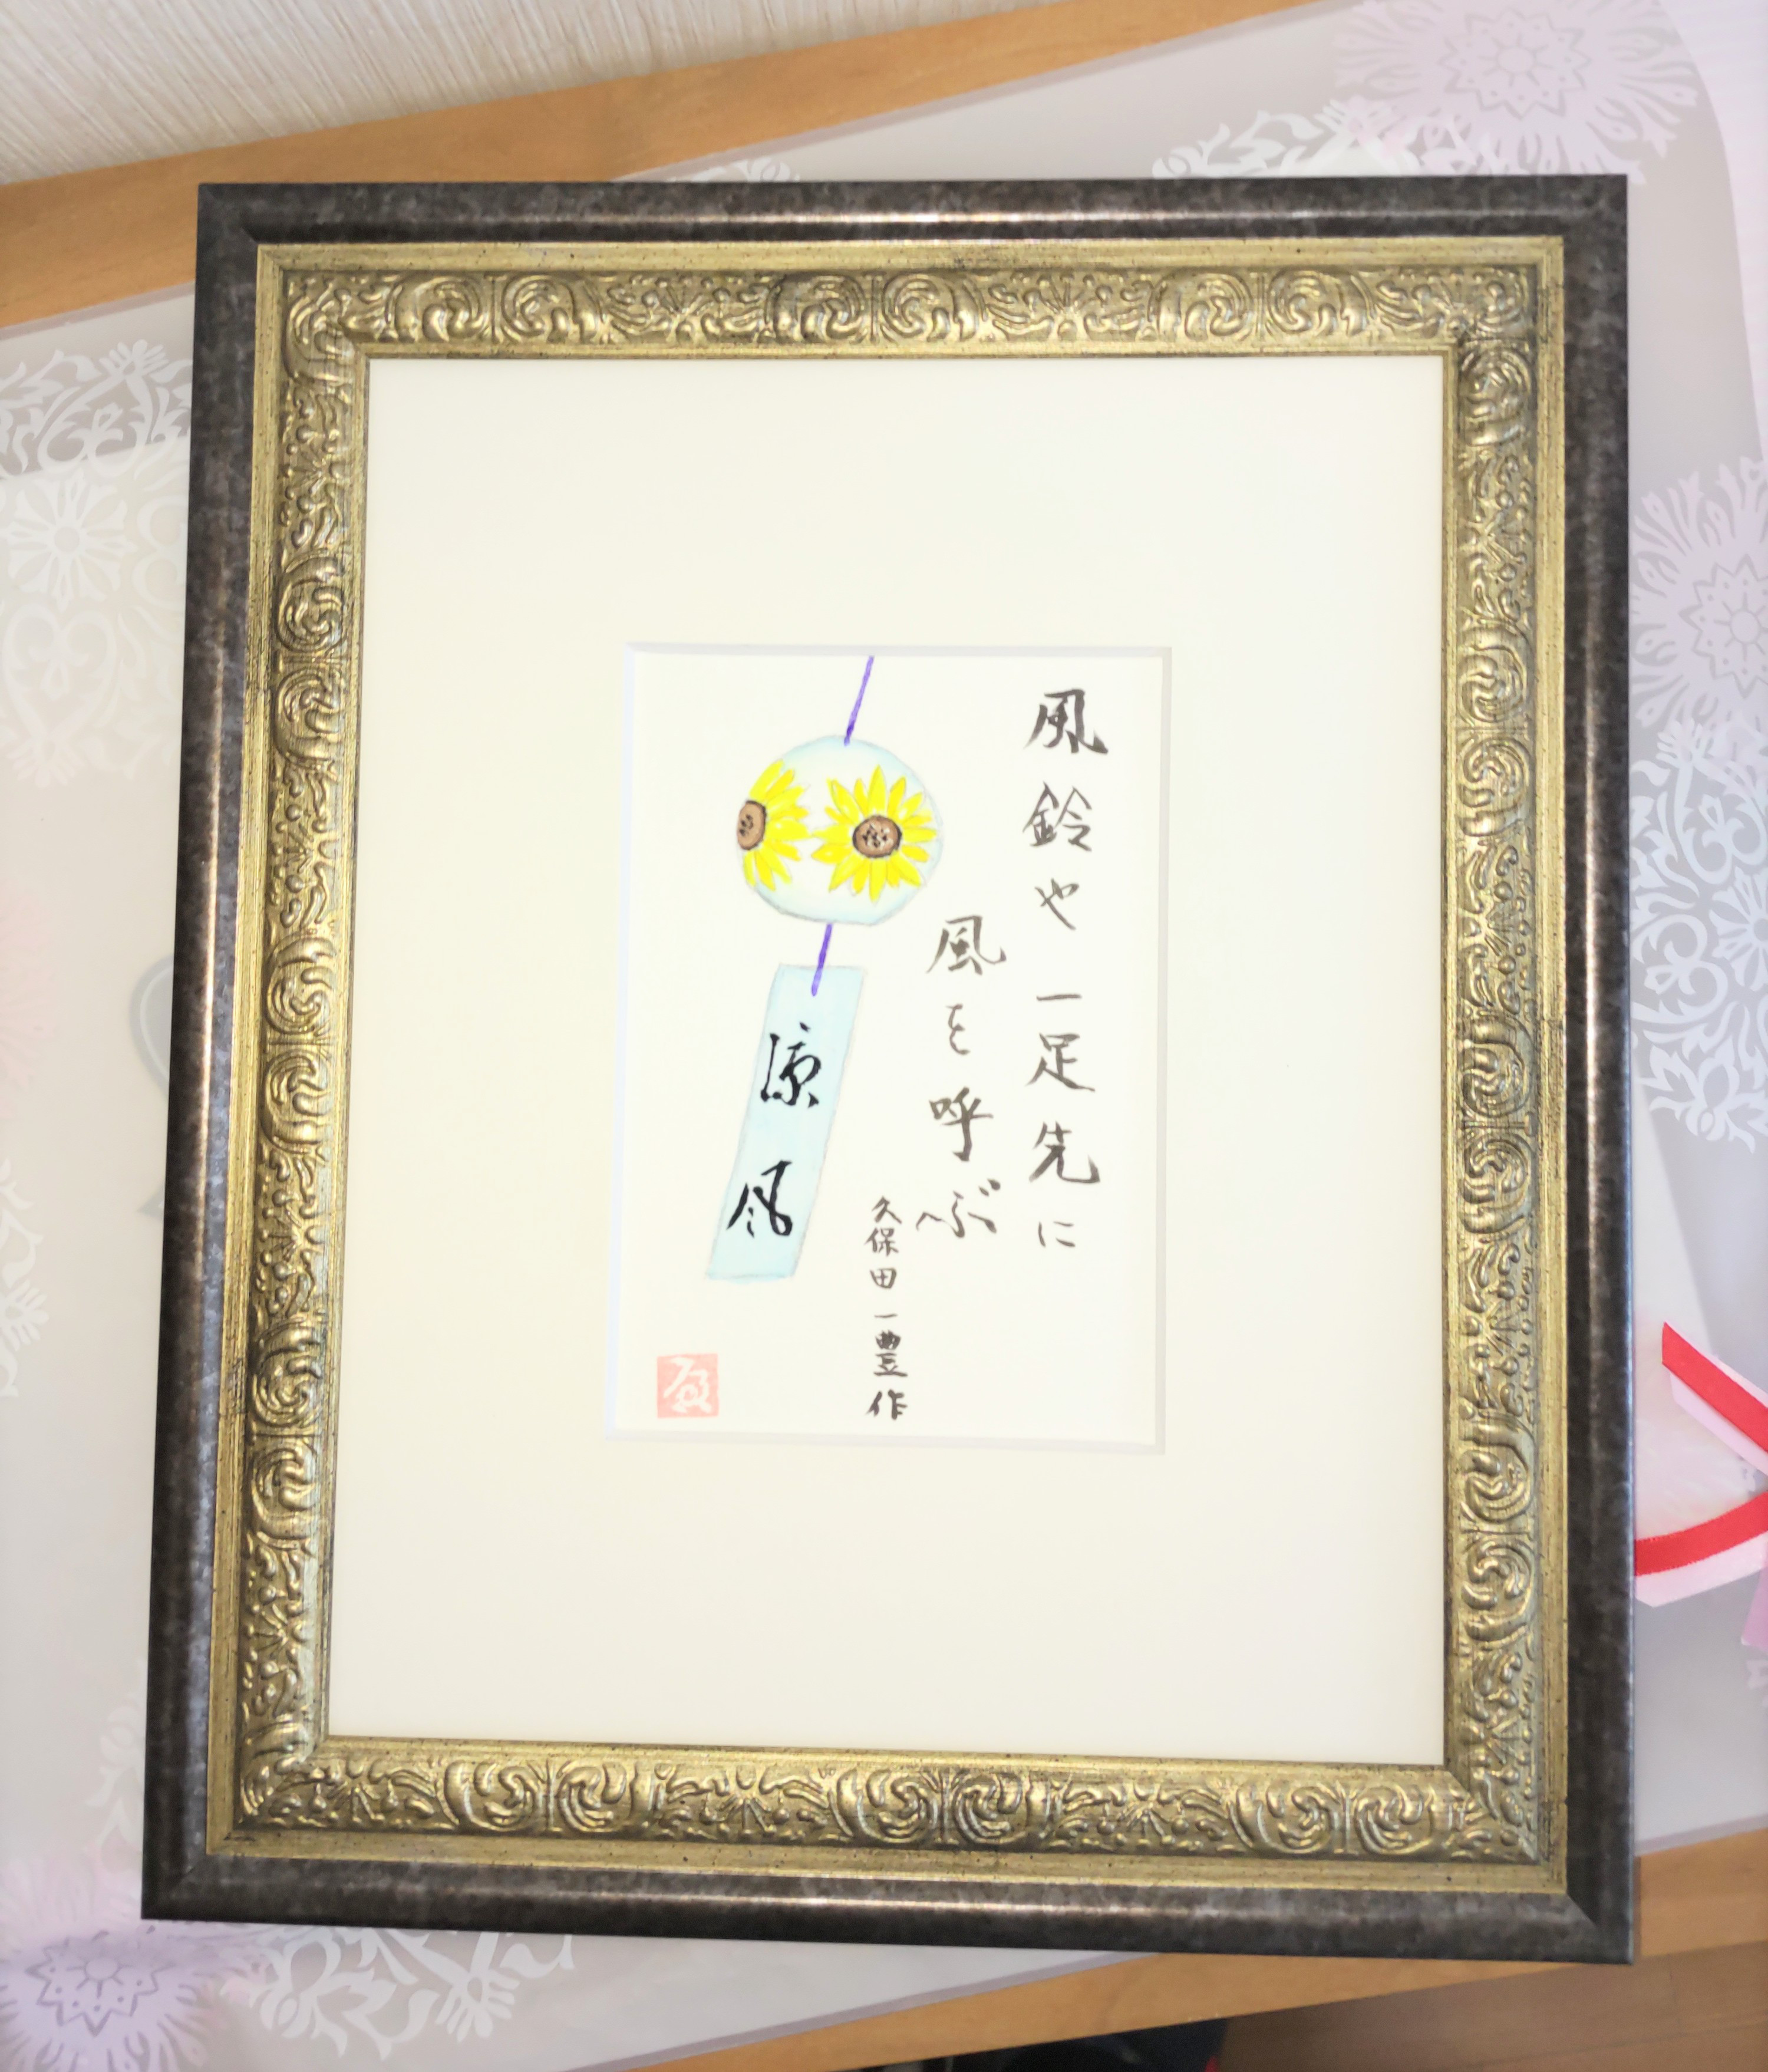 風鈴や一足先に
風を呼ぶ
久保田一豊作
涼風